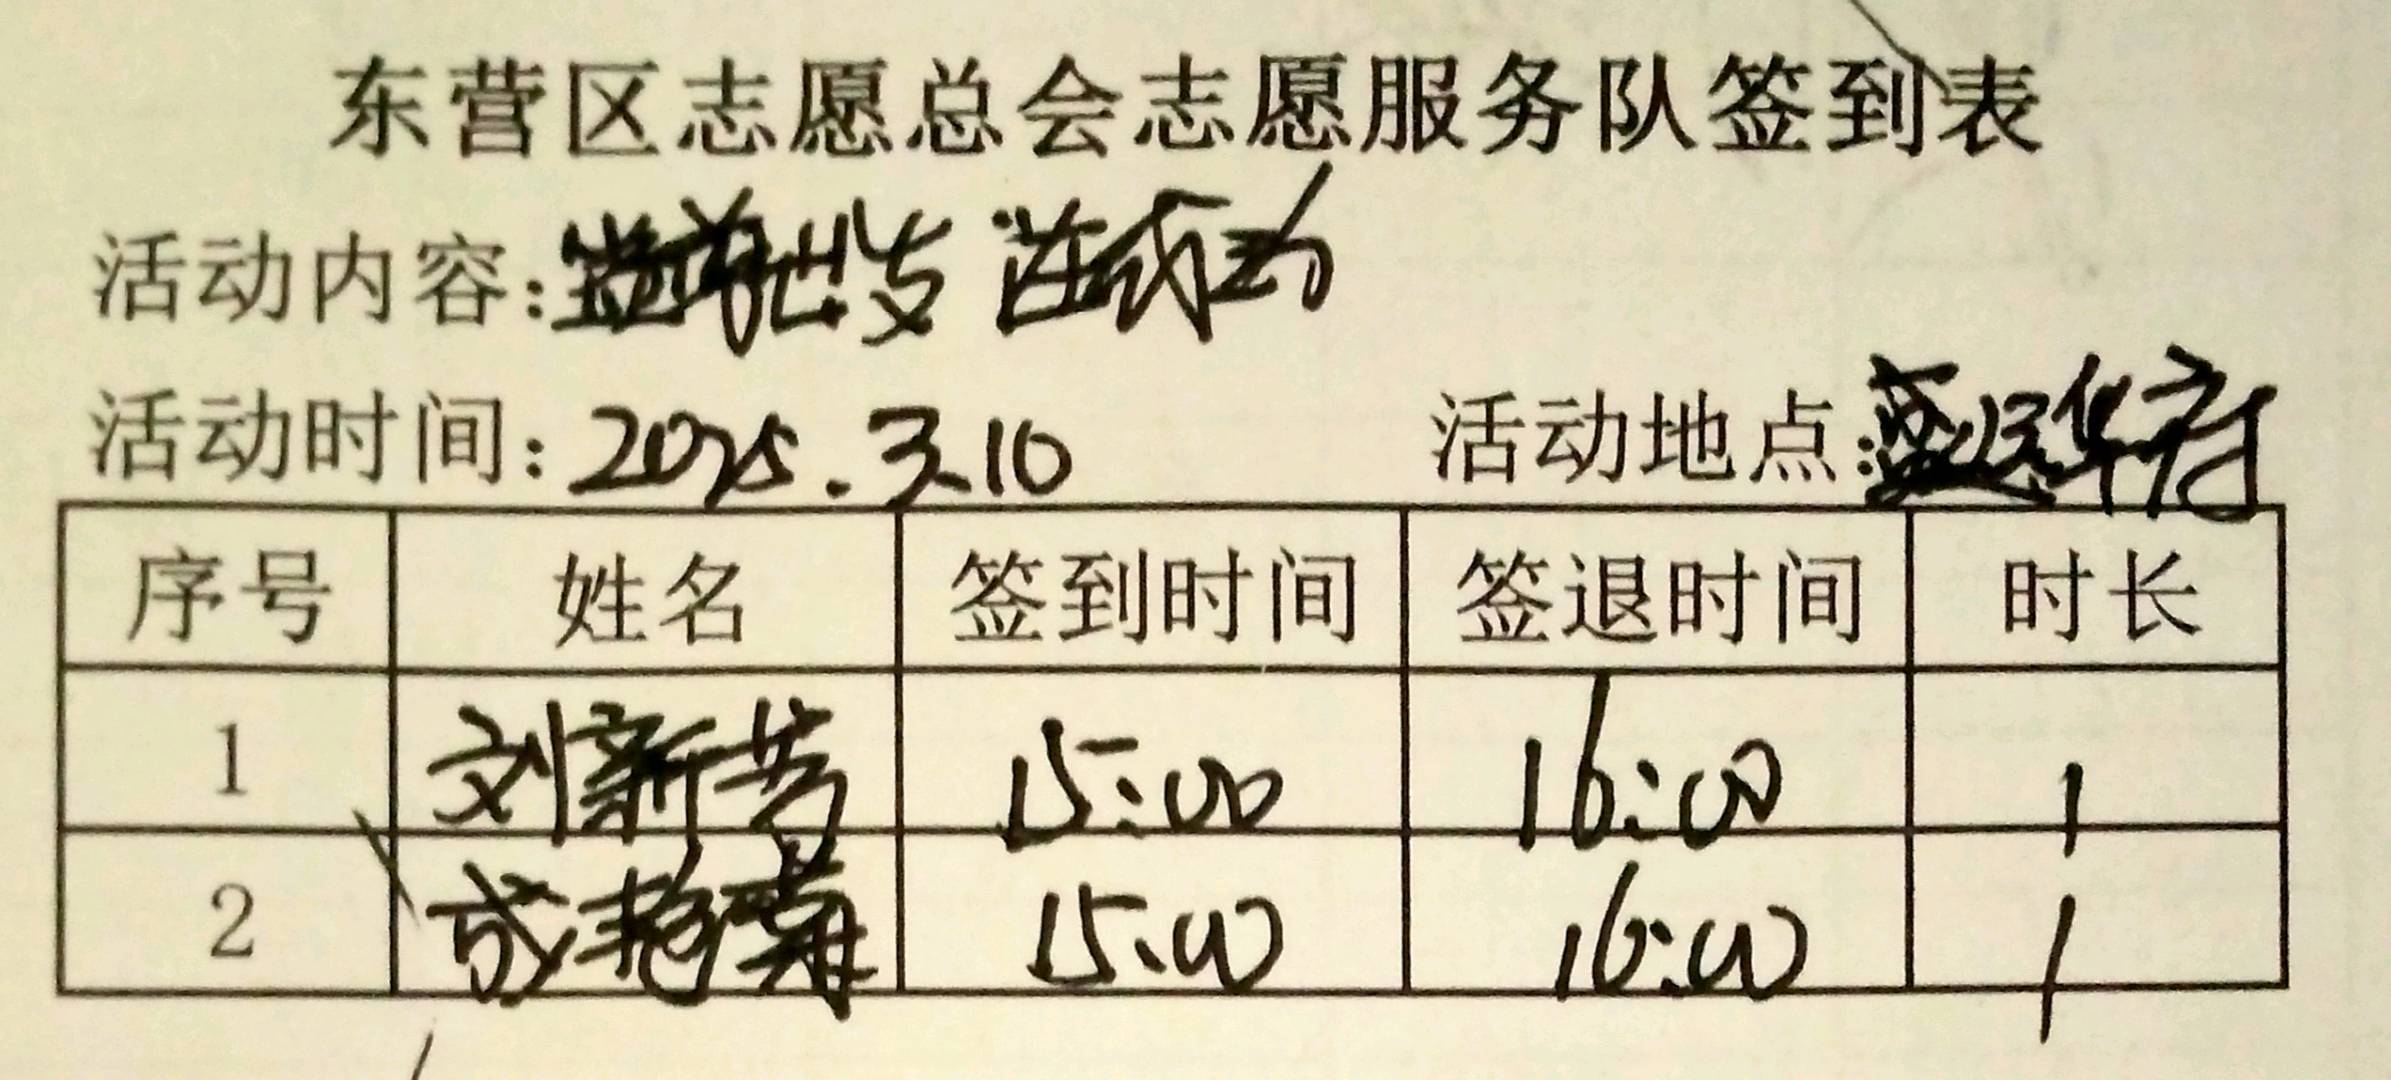 东营区志愿总会志愿服务队签到表
活动内容:
活动时间:2025.3.10 活动地点:华府
序号 姓名 签到时间 签退时间 时长
1 刘新芳 15:00 16:00 1
2 成艳菊 15:00 16:00 1